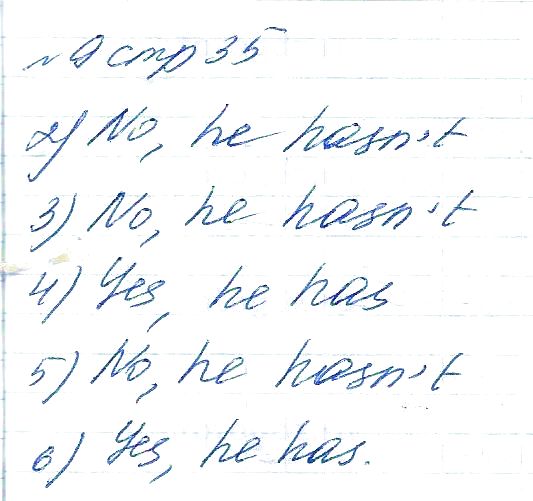 №9 стр 35
2) No, he hasn't
3) No, he hasn't
4) Yes, he has
5) No, he hasn't
6) Yes, he has.